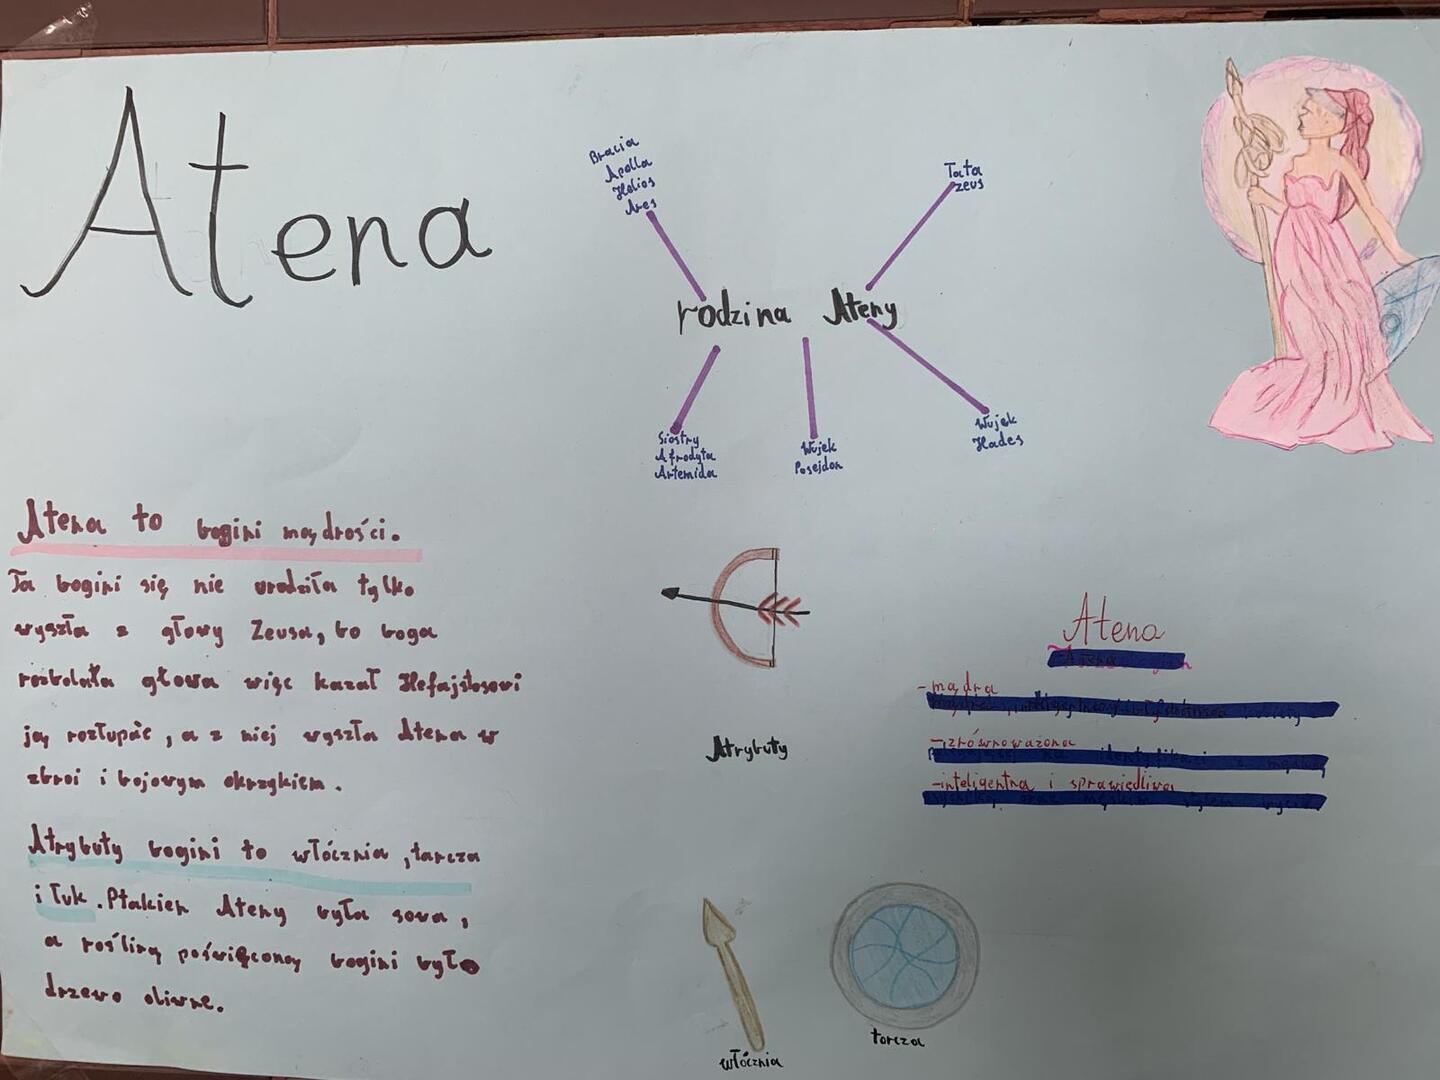 Atena
Bracia
Apolla
Helios
Ares
Tata
Zeus
rodzina Ateny
Siostry
Afrodyta
Artemida
Wujek
Posejdon
Wujek
Hades
Atena to bogini mądrości.
Ta bogini się nie urodziła tylko
wyszła z głowy Zeusa, bo boga
rozbolała głowa więc kazał Hefajstosowi
ją rozłupać, a z niej wyszła Atena w
zbroi i bojowym okrzykiem.
Atrybuty bogini to włócznia, tarcza
i łuk. Ptakiem Ateny była sowa,
a rośliną poświęconą bogini było
drzewo oliwne.
Atrybuty
włócznia
tarcza
Atena
-mądra
-zrównoważona
-inteligentna i sprawiedliwa